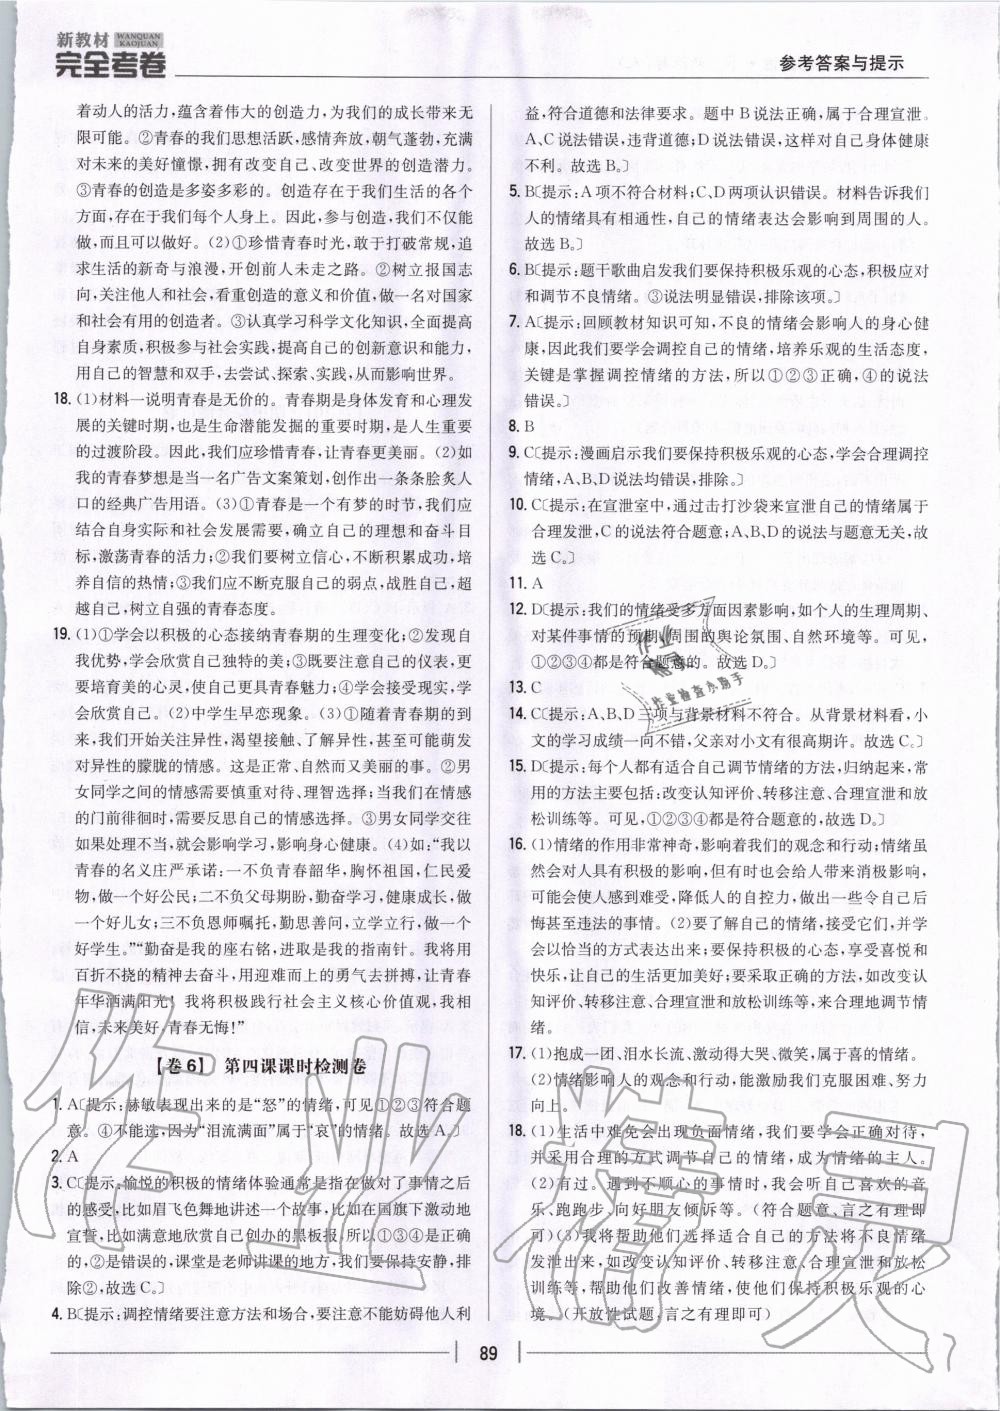 新教材 WANQUAN KAOJUAN
完全考卷
参考答案与提示
着动人的活力,蕴含着伟大的创造力,为我们的成长带来无
限可能。②青春的我们思想活跃,感情奔放,朝气蓬勃,充满
对未来的美好憧憬,拥有改变自己、改变世界的创造潜力。
③青春的创造是多姿多彩的。创造存在于我们生活的各个
方面,存在于我们每个人身上。因此,参与创造,我们不仅能
做,而且可以做好。(2)①珍惜青春时光,敢于打破常规,追
求生活的新奇与浪漫,开创前人未走之路。②树立报国志
向,关注他人和社会,看重创造的意义和价值,做一名对国家
和社会有用的创造者。③认真学习科学文化知识,全面提高
自身素质,积极参与社会实践,提高自己的创新意识和能力,
用自己的智慧和双手,去尝试、探索、实践,从而影响世界。
18. (1)材料一说明青春是无价的。青春期是身体发育和心理发
展的关键时期,也是生命潜能发掘的重要时期,是人生重要
的过渡阶段。因此,我们应珍惜青春,让青春更美丽。(2)如
我的青春梦想是当一名广告文案策划,创作出一条条脍炙人
口的经典广告用语。(3)①青春是一个有梦的时节,我们应
结合自身实际和社会发展需要,确立自己的理想和奋斗目
标,激荡青春的活力;②我们要树立信心,不断积累成功,培
养自信的热情;③我们应不断克服自己的弱点,战胜自己,超
越自己,树立自强的青春态度。
19. (1)①学会以积极的心态接纳青春期的生理变化;②发现自
我优势,学会欣赏自己独特的美;③既要注意自己的仪表,更
要培育美的心灵,使自己更具青春魅力;④学会接受现实,学
会欣赏自己。(2)中学生早恋现象。(3)①随着青春期的到
来,我们开始关注异性,渴望接触、了解异性,甚至可能萌发
对异性的朦胧的情感。这是正常、自然而又美丽的事。②男
女同学之间的情感需要慎重对待、理智选择;当我们在情感
的门前徘徊时,需要反思自己的情感选择。③男女同学交往
如果处理不当,就会影响学习,影响身心健康。(4)如:“我以
青春的名义庄严承诺:一不负青春韶华,胸怀祖国,仁民爱
物,做一个好公民;二不负父母期盼,勤奋学习,健康成长,做
一个好儿女;三不负恩师嘱托,勤思善问,立学立行,做一个
好学生。”“勤奋是我的座右铭,进取是我的指南针。我将用
百折不挠的精神去奋斗,用迎难而上的勇气去拼搏,让青春
年华洒满阳光!我将积极践行社会主义核心价值观,我相
信,未来美好,青春无悔!”
【卷6】 第四课课时检测卷
1. A〔提示:赫敏表现出来的是“怒”的情绪,可见①②③符合题
意。④不能选,因为“泪流满面”属于“哀”的情绪。故选A。〕
2. A
3. C〔提示:愉悦的积极的情绪体验通常是指在做对了事情之后
的感受,比如眉飞色舞地讲述一个故事,比如在国旗下激动地
宣誓,比如满意地欣赏自己创办的黑板报,所以①③④是正确
的,②是错误的,课堂是老师讲课的地方,我们要保持安静,排
除②,故选C。〕
4. B〔提示:调控情绪要注意方法和场合,要注意不能妨碍他人利
益,符合道德和法律要求。题中B说法正确,属于合理宣泄。
A、C说法错误,违背道德;D说法错误,这样对自己身体健康
不利。故选B。〕
5. B〔提示:A项不符合材料;C、D两项认识错误。材料告诉我们
人的情绪具有相通性,自己的情绪表达会影响到周围的人。
故选B。〕
6. B〔提示:题干歌曲启发我们要保持积极乐观的心态,积极应对
和调节不良情绪。③说法明显错误,排除该项。〕
7. A〔提示:回顾教材知识可知,不良的情绪会影响人的身心健
康,因此我们要学会调控自己的情绪,培养乐观的生活态度,
关键是掌握调控情绪的方法,所以①②③正确,④的说法
错误。〕
8. B
9. C〔提示:漫画启示我们要保持积极乐观的心态,学会合理调控
情绪,A、B、D说法均错误,排除。〕
10. C〔提示:在宣泄室中,通过击打沙袋来宣泄自己的情绪属于
合理发泄,C的说法符合题意;A、B、D的说法与题意无关,故
选C。〕
11. A
12. D〔提示:我们的情绪受多方面因素影响,如个人的生理周期、
对某件事情的预期、周围的舆论氛围、自然环境等。可见,
①②③④都是符合题意的。故选D。〕
13. C
14. C〔提示:A、B、D三项与背景材料不符合。从背景材料看,小
文的学习成绩一向不错,父亲对小文有很高期许。故选C。〕
15. D〔提示:每个人都有适合自己调节情绪的方法,归纳起来,常
用的方法主要包括:改变认知评价、转移注意、合理宣泄和放
松训练等。可见,①②③④都是符合题意的,故选D。〕
16. (1)情绪的作用非常神奇,影响着我们的观念和行动;情绪虽
然会对人具有积极的影响,但有时也会给人带来消极影响,
可能会使人感到难受,降低人的自控力,做出一些令自己后
悔甚至违法的事情。(2)要了解自己的情绪,接受它们,并学
会以恰当的方式表达出来;要保持积极的心态,享受喜悦和
快乐,让自己的生活更加美好;要采取正确的方法,如改变认
知评价、转移注意、合理宣泄和放松训练等,来合理地调节情
绪。
17. (1)抱成一团、泪水长流、激动得大哭、微笑,属于喜的情绪。
(2)情绪影响人的观念和行动,能激励我们克服困难、努力
向上。
18. (1)生活中难免会出现负面情绪,我们要学会正确对待,
并采用合理的方式调节自己的情绪,成为情绪的主人。
(2)有过。遇到不顺心的事情时,我会听自己喜欢的音
乐、跑跑步、向好朋友倾诉等。(符合题意、言之有理即
可)(3)我将帮助他们选择适合自己的方法将不良情绪
发泄出来,如改变认知评价、转移注意、合理宣泄和放松
训练等,帮助他们改善情绪,使他们保持积极乐观的心
境。(开放性试题,言之有理即可)
89
作业
精灵
作业检查小助手
作业精灵